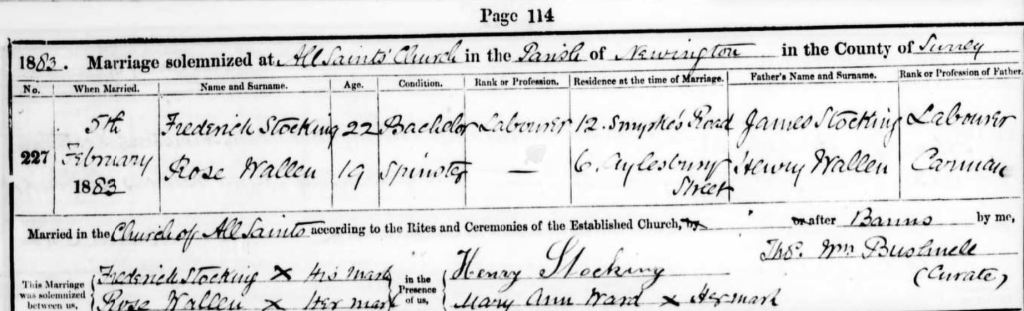 Page 114
1883. Marriage solemnized at All Saints' Church in the Parish of Newington in the County of Surrey
No. When Married. Name and Surname. Age. Condition. Rank or Profession. Residence at the time of Marriage. Father's Name and Surname. Rank or Profession of Father.
227 5th February 1883
Frederick Stocking 22 Bachelor Labourer 12. Smyrke's Road James Stocking Labourer
Rose Wallen 19 Spinster — 6. Aylesbury Street Henry Wallen Carman
Married in the Church of All Saints according to the Rites and Ceremonies of the Established Church, by or after Banns by me,
Thos. Wm Bushnell
(Curate)
This Marriage was solemnized between us,
Frederick Stocking X His Mark
Rose Wallen X Her mark
in the Presence of us,
Henry Stocking
Mary Ann Ward X Her mark